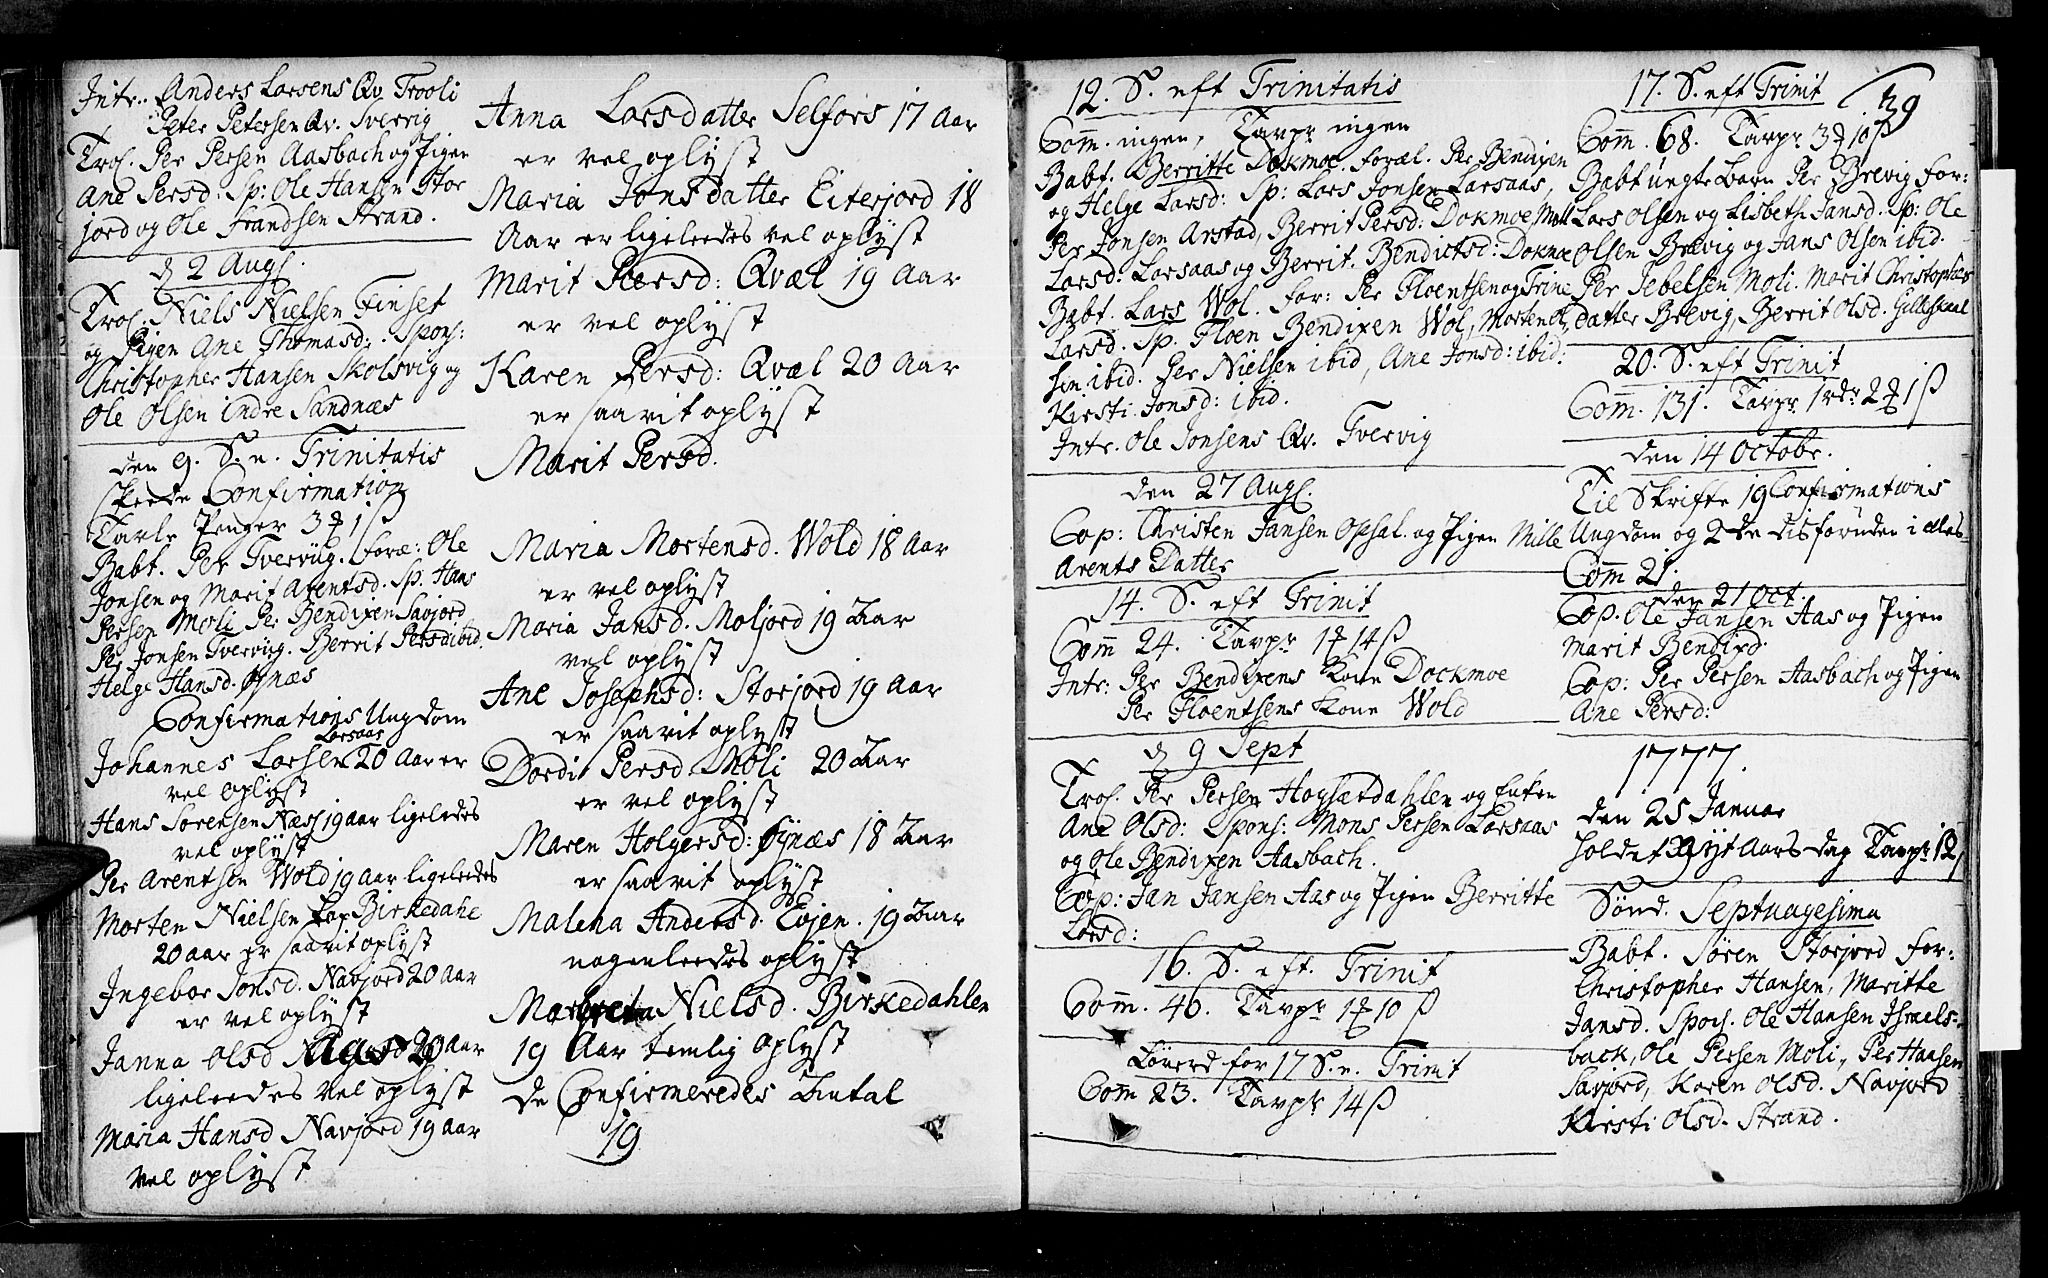 Intr. Anders Larsens Qv. Trooli
Peter Petersen Qv. Tverrig
Trol. Per Persen Aasbach og Pigen
Ane Persd: Sp: Ole Hansen Stor
jord og Ole Frandsen Strand.
d 2 Aug.
Trol. Niels Nielsen Finset
og Pigen Ane Thomasd: Spons:
Christopher Hansen Skolsvig og
Ole Olsen indre Sandnæs
den 9. S. n. Trinitatis
skeede Confirmation
Tavle Penger 3 1 ß
Babt. Per Tvervig. Foræ: Ole
Jonsen og Marit Arentsd. Sp. Hans
Persen Moli Per Bendixen Savjord
Per Jonsen Tvervig. Berrit Persd ibid.
Helge Hansd. Øynæs
Confirmations Ungdom
Johannes Larsen Larsaas 20 Aar er
vel oplyst
Hans Sørensen Næss 19 aar ligeledes
vel oplyst
Per Arentsen Wold 19 aar ligeleedes
Morten Nielsen Birkedahl
20 aar er saavit oplyst
Ingebor Jonsd. Navjord 20 Aar
er vel oplyst
Janna Olsd Aas 20 Aar
ligeleedes vel oplyst
Maria Hansd Navjord 19 aar
vel oplyst
Anna Larsdatter Selfors 17 Aar
er vel oplyst
Maria Jonsdatter Eiterjord 18
Aar er ligeleedes vel oplyst
Marit Persd: Qvæl 19 Aar
er vel oplyst
Karen Persd: Qvæl 20 Aar
er saavit oplyst
Marit Persd.
Maria Mortensd. Wold 18 Aar
er vel oplyst
Maria Jansd. Moljord 19 Aar
vel oplyst
Ane Josephsd: Storjord 19 Aar
er saavit oplyst
Dordi Persd Moli 20 Aar
er vel oplyst
Maren Holgersd: Øynæs 18 Aar
er saavit oplyst
Malena Andersd. Evjen. 19 Aar
nogenleedes oplyst
Margreta Nielsd. Birkedahlen
19 Aar temlig oplyst
de Confirmeredes Antal
19
12. S. eft Trinitatis
Com̄. ingen, Tavpr ingen
Babt. Berritte Dokmoe. Foræl. Per Bendixen
og Helge Larsd: Sp: Lars Jonsen Larsaas,
Per Jonsen Arstad, Berrit Persd: Dokmoe, Mall
Larsd: Larsaas og Berrit Bendictsd: Dokmoe
Babt. Lars Wol. For: Per Floentsen og Trine
Larsd. Sp. Floen Bendixen Wol, Morten Ol
sen ibid. Per Nielsen ibid, Ane Jonsd: ibid:
Kirsti Jonsd: ibid.
Intr. Ole Jonsens Qv. Tvervig
den 27 Aug.
Cop: Christen Jansen Opsal. og Pigen Mille
Arents Datter
14. S. eft Trinit
Com̄ 24. Tavpr 1 14 ß
Intr: Per Bendixens Kone Dockmoe
Per Floentsens Kone Wold
d 9 Sept
Trol. Per Persen Høysætdahlen og Enken
Ane Olsd: Spons: Mons Persen Larsaas
og Ole Bendixen Aasbach.
Cop: Jan Jansen Aas og Pigen Berritte
Larsd:
16. S. eft. Trinit
Com̄. 46. Tavpr 1 10 ß
Løverd for 17 S. n. Trinit
Com̄ 23. Tavpr 14 ß
39
17. S. eft Trinit
Com̄. 68. Tavpr 3 10 ß
Babt ungte Barn Per Brevig For:
Lars Olsen og Lisbeth Jansd. Sp: Ole
Olsen Brevig og Jans Olsen ibid.
Per Jebelsen Moli. Marit Christophers
datter Brevig, Berrit Olsd. Gillesaal
20. S. eft Trinit
Com̄. 131. Tavpr 1 rdr 2 1 ß
den 14 Octobr.
Til Skrifte 19 Confirmations
Ungdom og 2 de disforuden i alles
Com̄ 21.
den 21 Oct.
Cop. Ole Jansen Aas og Pigen
Marit Bendixd.
Cop: Per Persen Aasbach og Pigen
Ane Persd:
1777.
den 25 Januar
holdet Nyt Aars dag Tavpr 12
Sønd. Septuagesima
Babt. Søren Storjord For:
Christopher Hansen, Maritte
Jansd. Spos. Ole Hansen Israels-
back, Ole Persen Moli, Per Hansen
Savjord, Karen Olsd. Navjord
Kirsti Olsd. Strand.